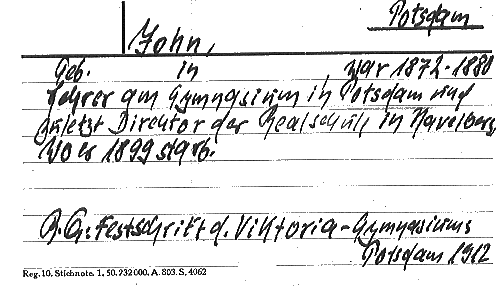 Potsdam
John,
Geb. in war 1872-1880
Lehrer am Gymnasium in Potsdam und
zuletzt Direktor der Realschule in Havelberg,
wo er 1899 starb.
R. G: Festschrift d. Viktoria-Gymnasiums
Potsdam 1912
Reg. 10. Stichnote. 1. 50. 232 000. A. 803. S. 4062